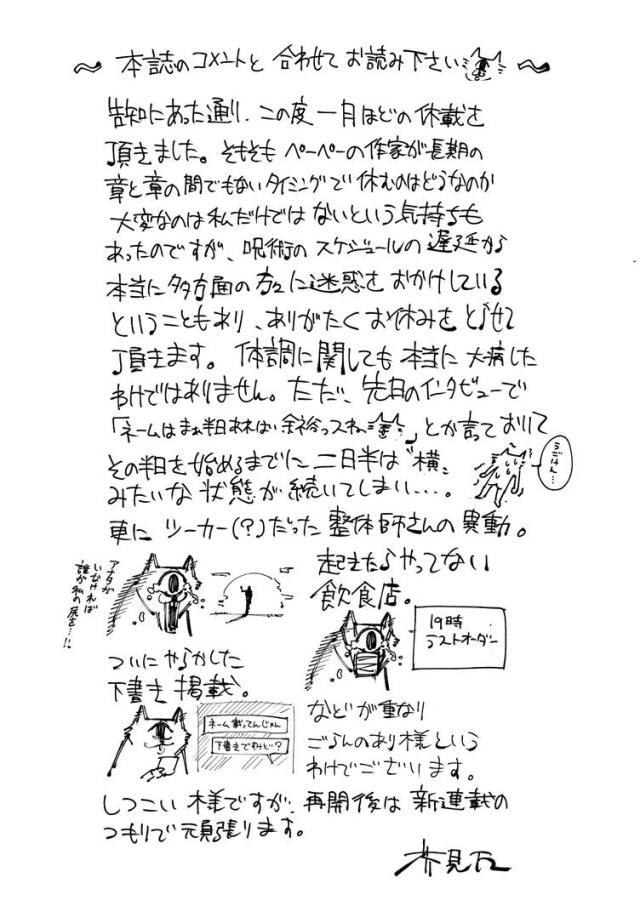 本誌のコメントと合わせてお読み下さい
告知にあった通り、この度一月ほどの休載を
頂きました。そもそもペーペーの作家が長期の
章と章の間でもないタイミングで休むのはどうなのか
大変なのは私だけではないという気持ちも
あったのですが、呪術のスケジュールの遅延から
本当に多方面の方々に迷惑をおかけしている
ということもあり、ありがたくお休みをとらせて
頂きます。体調に関しても本当に大病した
わけではありません。ただ、先日のインタビューで
「ネームはまぁ半日あれば余裕っスね」とか言っておいて
その半日を始めるまでに二日半は〝横〟
みたいな状態が続いてしまい…。
うごけん…
更にツーカー(?)だった整体師さんの異動。
アナタが
いなければ
誰が私の尻を…!!
起きたらやってない
飲食店。
19時
ラストオーダー
ついにやらかした
下書き掲載。
ネーム載ってんじゃん
下書きですけど?
などが重なり
ごらんのあり様という
わけでございます。
しつこい様ですが、再開後は新連載の
つもりで頑張ります。
芥見下々